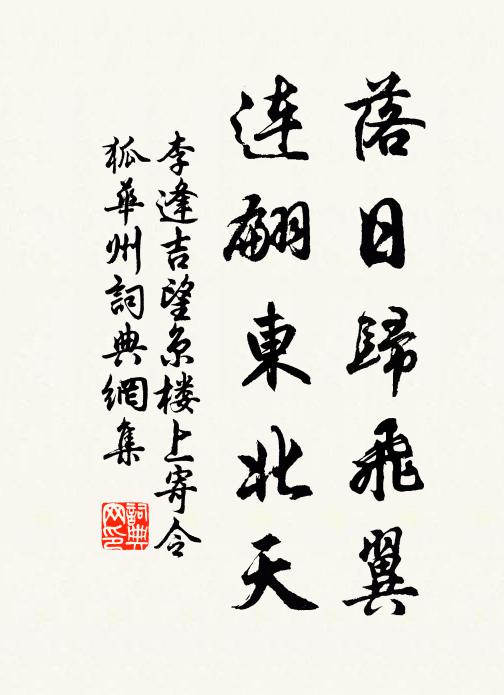 落日歸飛翼
連翩東北天
李逢吉望京楼上寄令
狐華州詞典網集
詞典
网印